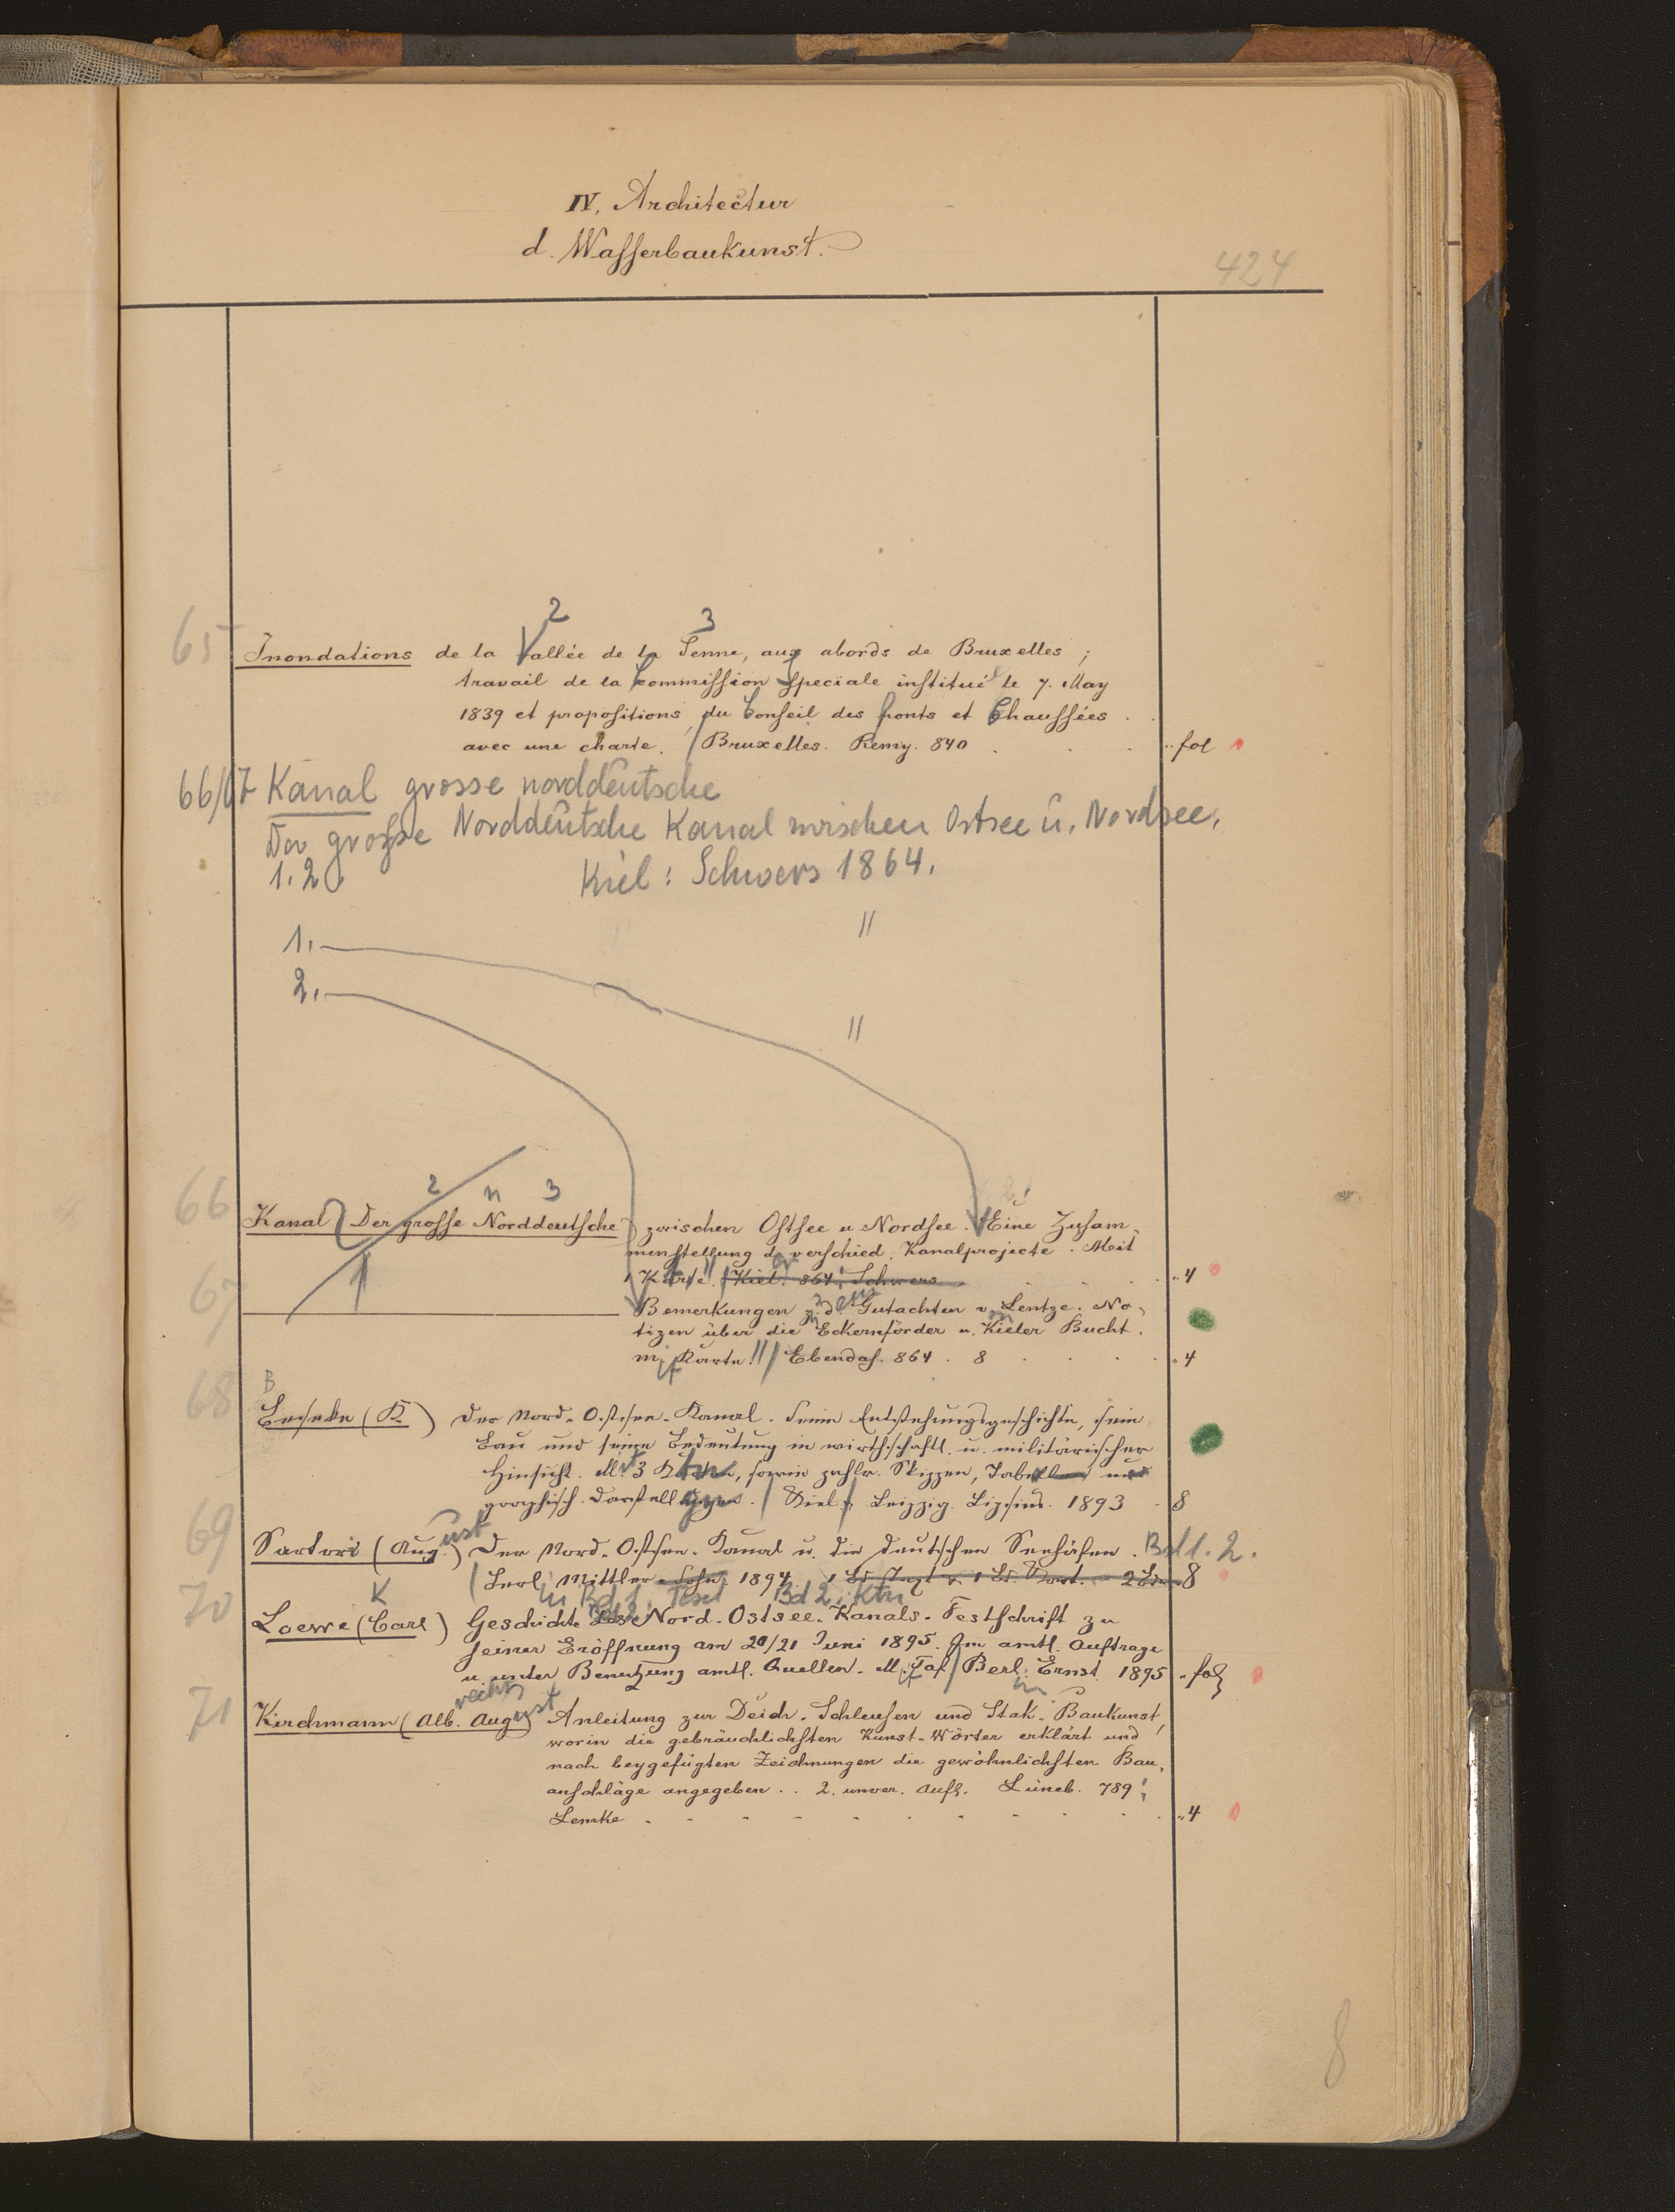 IV. Architectur
d. Wasserbaukunst.
424
2 3
65 Inondations de la Vallée de la Senne, aux abords de Bruxelles ;
travail de la Commission speciale institué le 7. May
1839 et propositions du Conseil des ponts et Chaussées .
avec une charte. / Bruxelles. Remy. 840 . . . fol
66/67 Kanal grosse norddeutsche
Der grosse Norddeutsche Kanal zwischen Ostsee u. Nordsee.
1. 2. Kiel: Schwers 1864.
1. "
2. "
2 n 3
66 Kanal (Der grosse Norddeutsche) zwischen Ostsee u Nordsee. Eine Zusam-
menstellung d. verschied. Kanalprojecte. Mit
1 Karte. Kiel. 864. Schwers . . . 4
67 Bemerkungen z. d. Gutachten v. Lentze. No-
tizen über die Eckernförder u. Kieler Bucht.
mit Karte. // Ebendas. 864. 8 . . . 4
68 Beseke (K.) Der Nord-Ostsee-Kanal. Seine Entstehungsgeschichte, sein
Bau und seine Bedeutung in wirthschaftl. u. militärischer
Hinsicht. Mit 3 Karten, sowie zahlr. Skizzen, Tabellen und
graphisch. Darstellungen. / Kiel u. Leipzig. Lipsius. 1893 . 8
69 Sartori (August) Der Nord-Ostsee-Kanal u. die deutschen Seehäfen. Bd 1. 2.
/ Berl. Mittler u. Sohn. 1894. 1 Bd. Text u. 1 Bd. Kart. = 2 Bde 8
Bd 1: Text Bd 2: Ktn
70 Loewe (Carl) K Geschichte des Nord-Ostsee-Kanals. Festschrift zu
seiner Eröffnung am 20/21 Juni 1895. Im amtl. Auftrage
u. unter Benutzung amtl. Quellen. Mit Taf. / Berl. Ernst 1895 . fol
71 Kirchmann (Albrecht August) Anleitung zur Deich- Schleusen und Stak-Baukunst,
worin die gebräuchlichsten Kunst-Wörter erklärt und
nach beygefügten Zeichnungen die gewöhnlichsten Bau-
anschläge angegeben . . 2. unver. Aufl. Lüneb. 789.
Lemke . . . 4
8